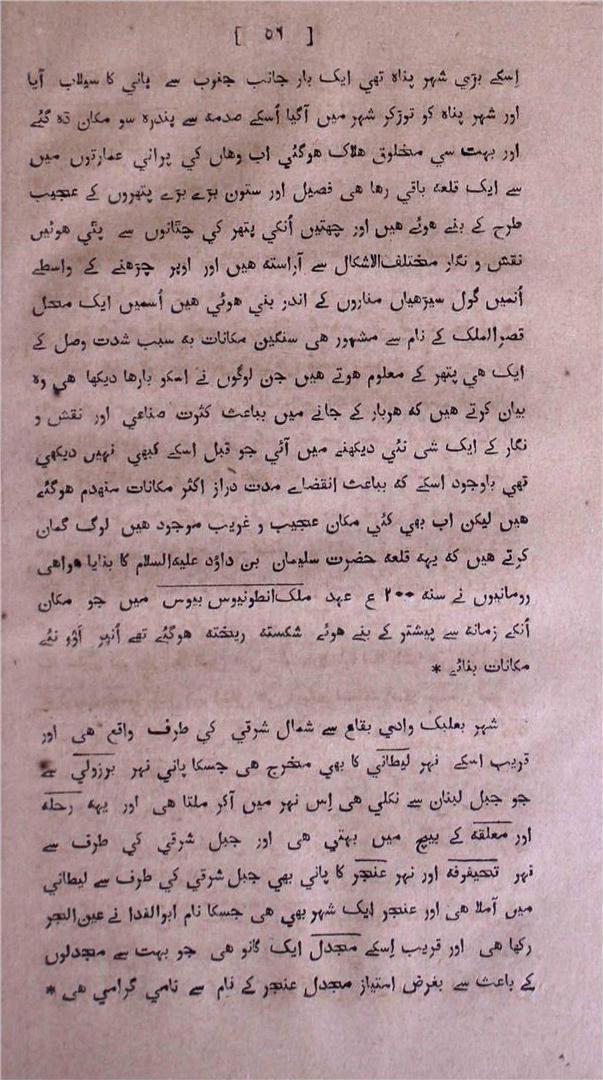 [ ٥٦ ]
اِسکے بڑي شہر پناہ تھي ایک بار جانب جنوب سے پاني کا سیلاب آیا
اور شہر پناہ کو توڑکر شہر میں آگیا اُسکے صدمہ سے پندرہ سو مکان ڈہ گئے
اور بہت سي مخلوق ھلاک ھوگئي اب وھاں کي پراني عمارتوں میں
سے ایک قلعہ باقي رھا ھی فصیل اور ستون بڑے بڑے پتھروں کے عجیب
طرح کے بنے ھوئے ھیں اور چھتیں اُنکي پتھر کي چٹانوں سے پٹي ھوئیں
نقش و نگار مختلف‌الاشکال سے آراستہ ھیں اور اوپر چڑھنے کے واسطے
اُنمیں گول سیڑھیاں مناروں کے اندر بني ھوئي ھیں اُسمیں ایک محل
قصرالملک کے نام سے مشہور ھی سنگین مکانات بہ سبب شدت وصل کے
ایک ھي پتھر کے معلوم ھوتے ھیں جن لوگوں نے اسکو بارھا دیکھا ھی وہ
بیان کرتے ھیں کہ ھربار کے جانے میں بباعث کثرت صناعي اور نقش و
نگار کے ایک شی نئي دیکھنے میں آئي جو قبل اسکے کبھي نہیں دیکھي
تھي باوجود اسکے کہ بباعث انقضاے مدت دراز اکثر مکانات منہدم ھوگئے
ھیں لیکن اب بھي کئي مکان عجیب و غریب موجود ھیں لوگ گمان
کرتے ھیں کہ یہہ قلعہ حضرت سلیمان بن داؤد علیہ‌السلام کا بنایا ھواھی
رومانیوں نے سنہ ۲۰۰ ع عہد ملک‌انطونیوس بیوس میں جو مکان
اُنکے زمانہ سے پیشتر کے بنے ھوئے شکستہ ریختہ ھوگئے تھے اُنپر اَوُر نئے
مکانات بنائے *
شہر بعلبک وادي بقاع سے شمال شرقي کي طرف واقع ھی اور
قریب اسکے نہر لیطاني کا بھي مخرج ھی جسکا پاني نہر برزولي سے
جو جبل لبنان سے نکلي ھی اِس نہر میں آکر ملتا ھی اور یہہ رحلہ
اور معلقہ کے بیچ میں بہتي ھی اور جبل شرقي کي طرف سے
نہر تحیفوفہ اور نہر عنجر کا پاني بھي جبل شرقي کي طرف سے لیطاني
میں آملا ھی اور عنجر ایک شہر بھي ھی جسکا نام ابوالفدا نے عین‌الجر
رکھا ھی اور قریب اِسکے مجدل ایک گانو ھی جو بہت سے مجدلوں
کے باعث سے بغرض امتیاز مجدل عنجر کے نام سے نامي گرامي ھی *